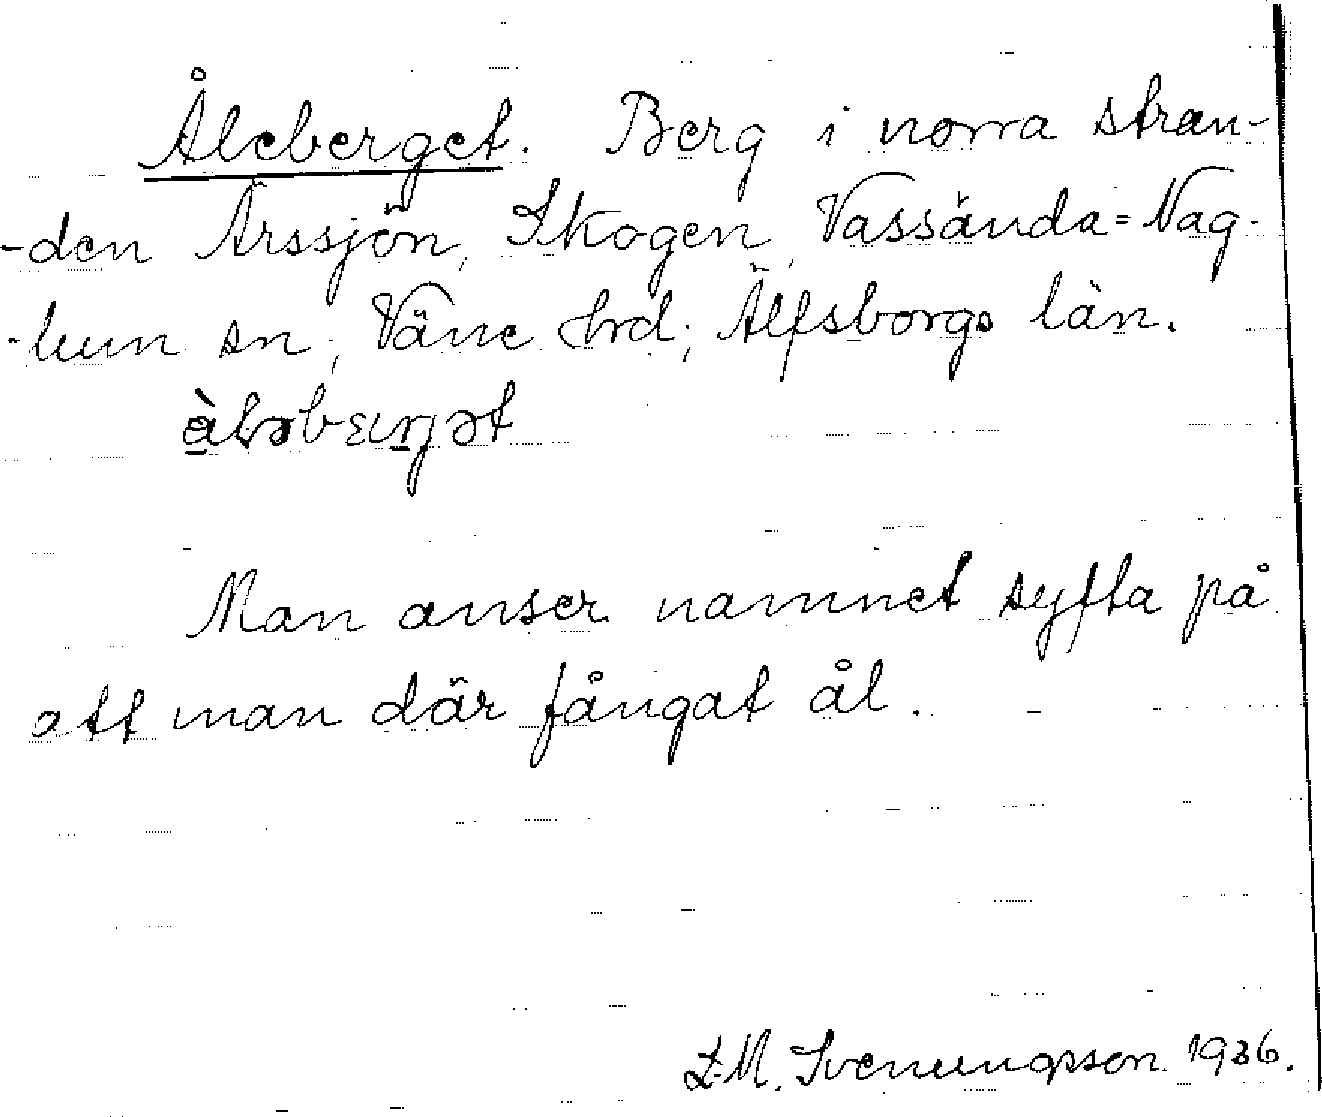 Åleberget. Berg i norra stran-
-den Ärssjön, Skogen, Vassända=Nag-
-lum sn, Väne hrd, Älfsborgs län.
Man anser namnet syfta på
att man där fångat ål.
L.M. Svenungsson 1936.